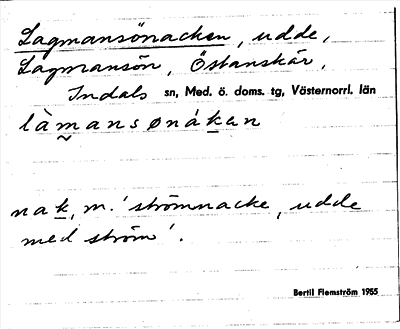 Lagmansönacken, udde,
Lagmansön, Östanskär,
Indals sn, Med. ö. doms. tg, Västernorrl. län
làm̰ansønák̲an
nak̲, m. 'strömnacke, udde
med ström'.
Bertil Flemström 1955